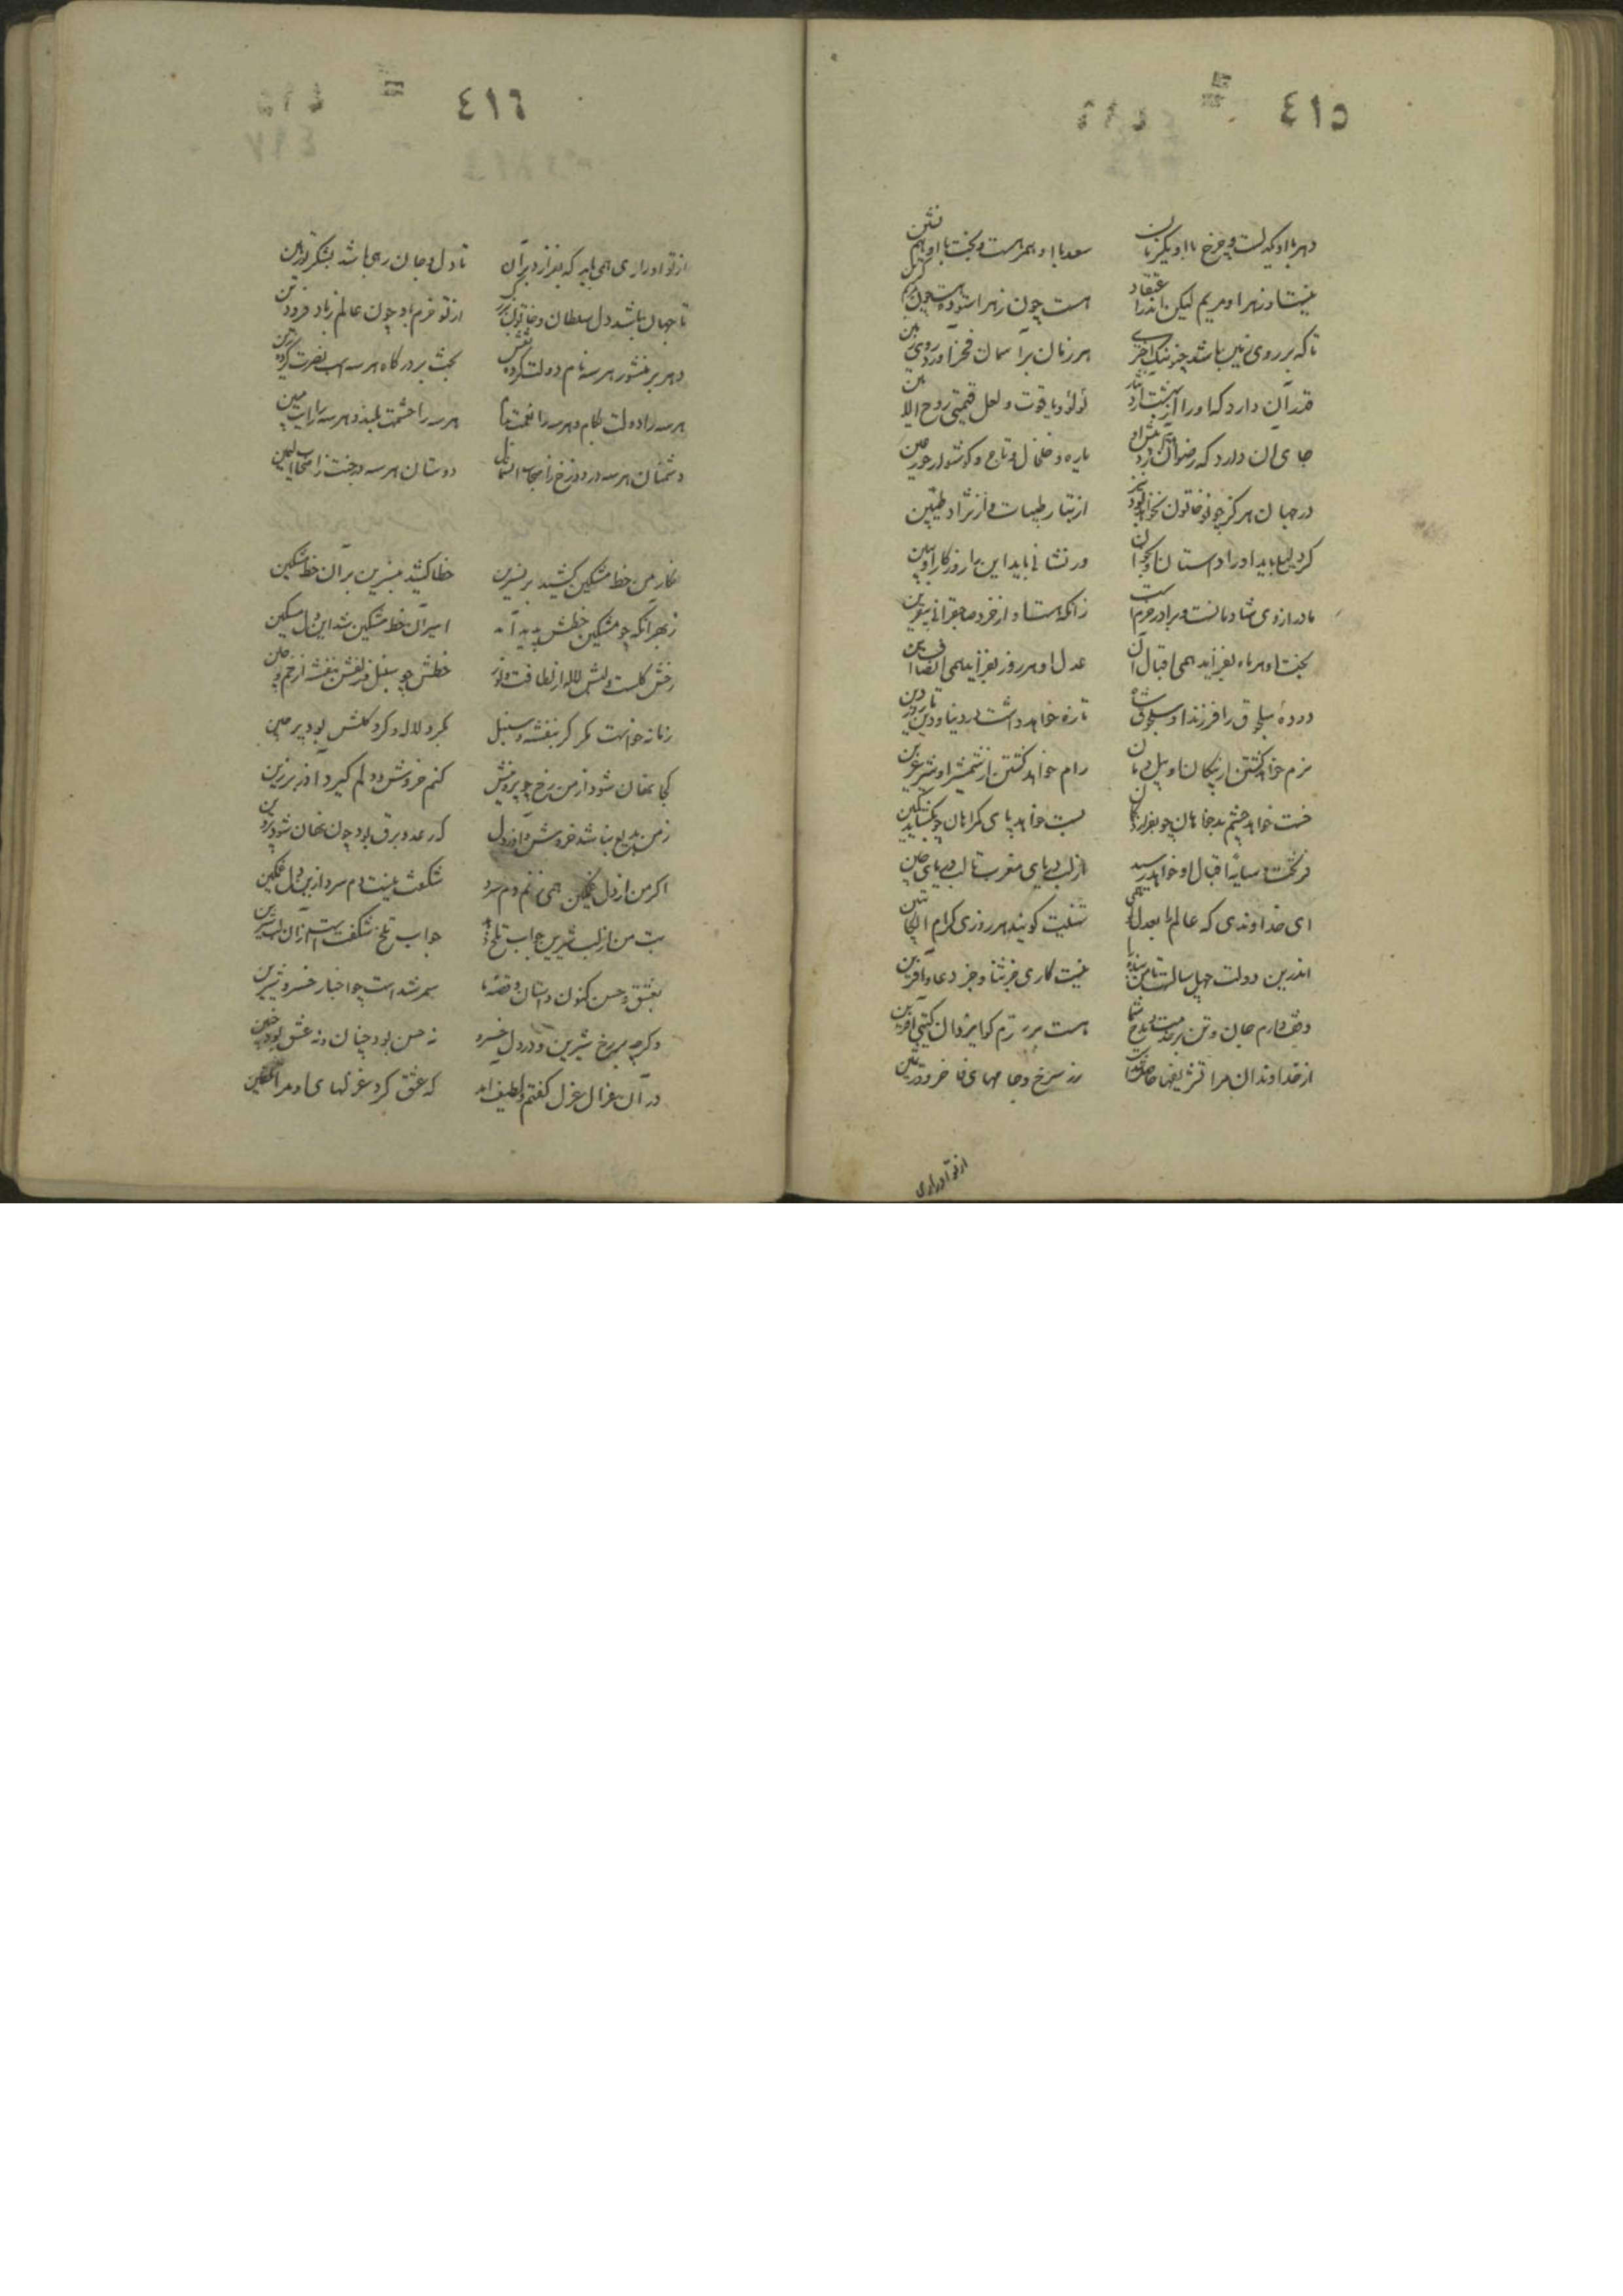 ٤١٥
دهر با او یکدلست و چرخ با او یکزبان سعد با او همبرست و بخت با او همنشین
نیست او زهرا و مریم لیکن اندر اعتقاد هست چون زهرا ستوده هست چون مریم گزین
تا که بر روی زمین باشد چنو نیک اختری هر زمان بر آسمان فخر آورد روی زمین
قدر آن دارد که او را از بهشت آرد نثار لؤلؤ و یاقوت و لعل قیمتی روح الامین
جای آن دارد که رضوان آورد یاره و خلخال و تاج و گوشوار حور عین
در جهان هرگز چو تو خاتون نخواهد بود نیز از تبار طیبات و از نژاد طیبین
گر دلیل باید او را داستان ور نشانی باید این را روزگار او ببین
مادر از وی شادمانست و برادر خرمست زانکه هست او از خرد صاحبقرانی بیقرین
بخت او هر ماه بفزاید همی اقبال آن عدل او هر روز بفزاید همی انصاف این
دودهٔ سلجوق را فرزند او سلجوق شاه تازه خواهد داشت در دنیا و دین
نرم خواهد گشتن از پیکان او پیل دمان رام خواهد گشتن از شمشیر او شیر عرین
خست خواهد چشم بدخواهان چو بفرازد کمان بست خواهد پای گمراهان چو بگشاید کمین
فر تخت و سایهٔ اقبال او خواهد رسید از لب دریای مغرب تا لب دریای چین
ای خداوندی که عالم را بعدل تهنیت گویند هر روزی کرام الکاتبین
اندرین دولت چهل سالست تا من بنده را نیست کاری جز ثنا و جز دعا و آفرین
وقف دارم جان و تن بر خدمت و مدح شما هست بر رازم گوا یزدان گیتی آفرین
از خداوندان مرا تشریفها حاصل شدست زر سرخ و جامهای فاخر و در ثمین
از تو ادراری
٤١٦
از تو ادراری همی باید که بفزاید بر آن تا دل و جان رهی باشد بشکر تو رهین
تا جهان باشد دل سلطان و خاتون بزرگ از تو خرم باد چون عالم ز باد فرودین
دهر بر منشور هر سه نام دولت کرده نقش بخت بر درگاه هر سه اسب نصرت کرده زین
هر سه را دولت بکام و هر سه را نعمت تمام هر سه را حشمت بلند و هر سه را رایت مبین
دشمنان هر سه در دوزخ ز اصحاب الشمال دوستان هر سه در جنت ز اصحاب الیمین
نگار من خط مشکین کشید بر نسرین خطا کشید بنسرین بر آن خط مشکین
ز بهر آنکه چو مشکین خطش پدید آمد اسیر آن خط مشکین شد این دل مسکین
رخش گلست و لبش لاله از لطافت و نور خطش چو سنبل و زلفش بنفشه از خم و چین
زمانه خواست مگر کز بنفشه و سنبل بگرد لاله و گرد گلش بود پرچین
کجا نهان شود از من رخ چو پروینش کنم خروش و دلم گیرد آذر برزین
ز من بدیع نباشد خروش و آذر دل که رعد و برق بود چون نهان شود پروین
اگر من از دل غمگین همی زنم دم سرد شگفت نیست دم سرد از دل غمگین
بت من از لب شیرین جواب تلخ دهد جواب تلخ شگفتست از آن لب شیرین
بعشق و حسن کنون داستان و قصهٔ ما سمر شداست چو اخبار خسرو و شیرین
وگرچه بر رخ شیرین و در دل خسرو نه حسن بود چنان و نه عشق بود چنین
در آن غزال غزل گفتم و لطیف آمد که عشق کرد غزلهای او مرا تلقین